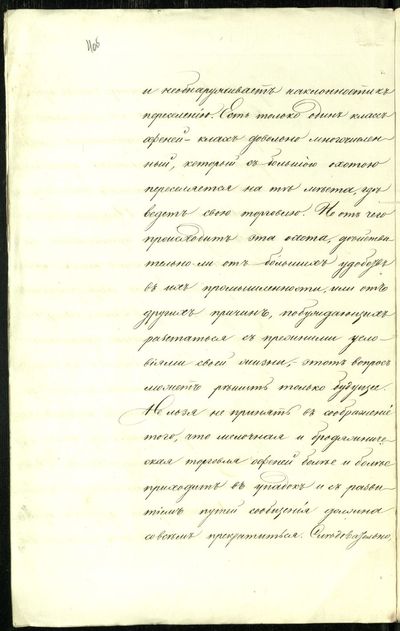 и необнаруживаетъ наклонности къ
переселенію. Есть только одинъ классъ
офеней – классъ довольно многочислен-
ный, который съ большою охотою
переселяется на тѣ мѣста, гдѣ
ведетъ свою торговлю. Но отъ чего
происходитъ эта охота, дѣйстви-
тельно-ли отъ большихъ удобствъ
въ ихъ промышленности, или отъ
другихъ причинъ, побуждающихъ
разстаться съ прежними усло-
віями своей жизни, – этотъ вопросъ
можетъ рѣшить только будущее.
Нельзя не принять въ соображеніе
того, что мелочная и бродячниче-
ская торговля офеней болѣе и болѣе
приходитъ въ упадокъ и съ разви-
тіемъ путей сообщенія должна
совсѣмъ прекратиться. Слѣдовательно,